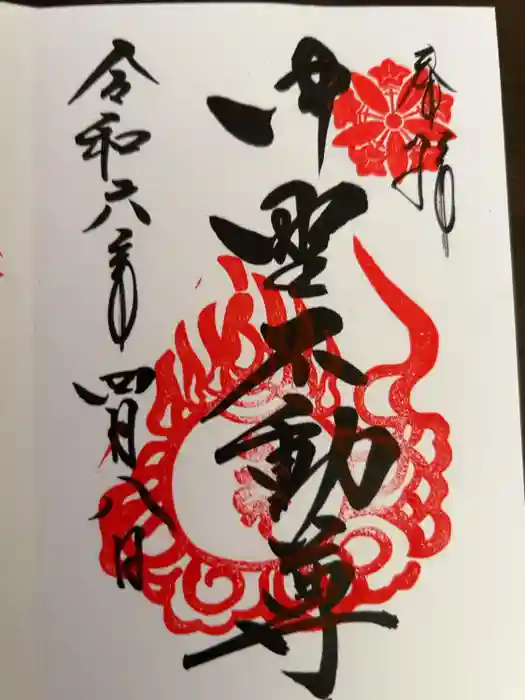 奉拝
沖聖不動尊
令和六年四月八日